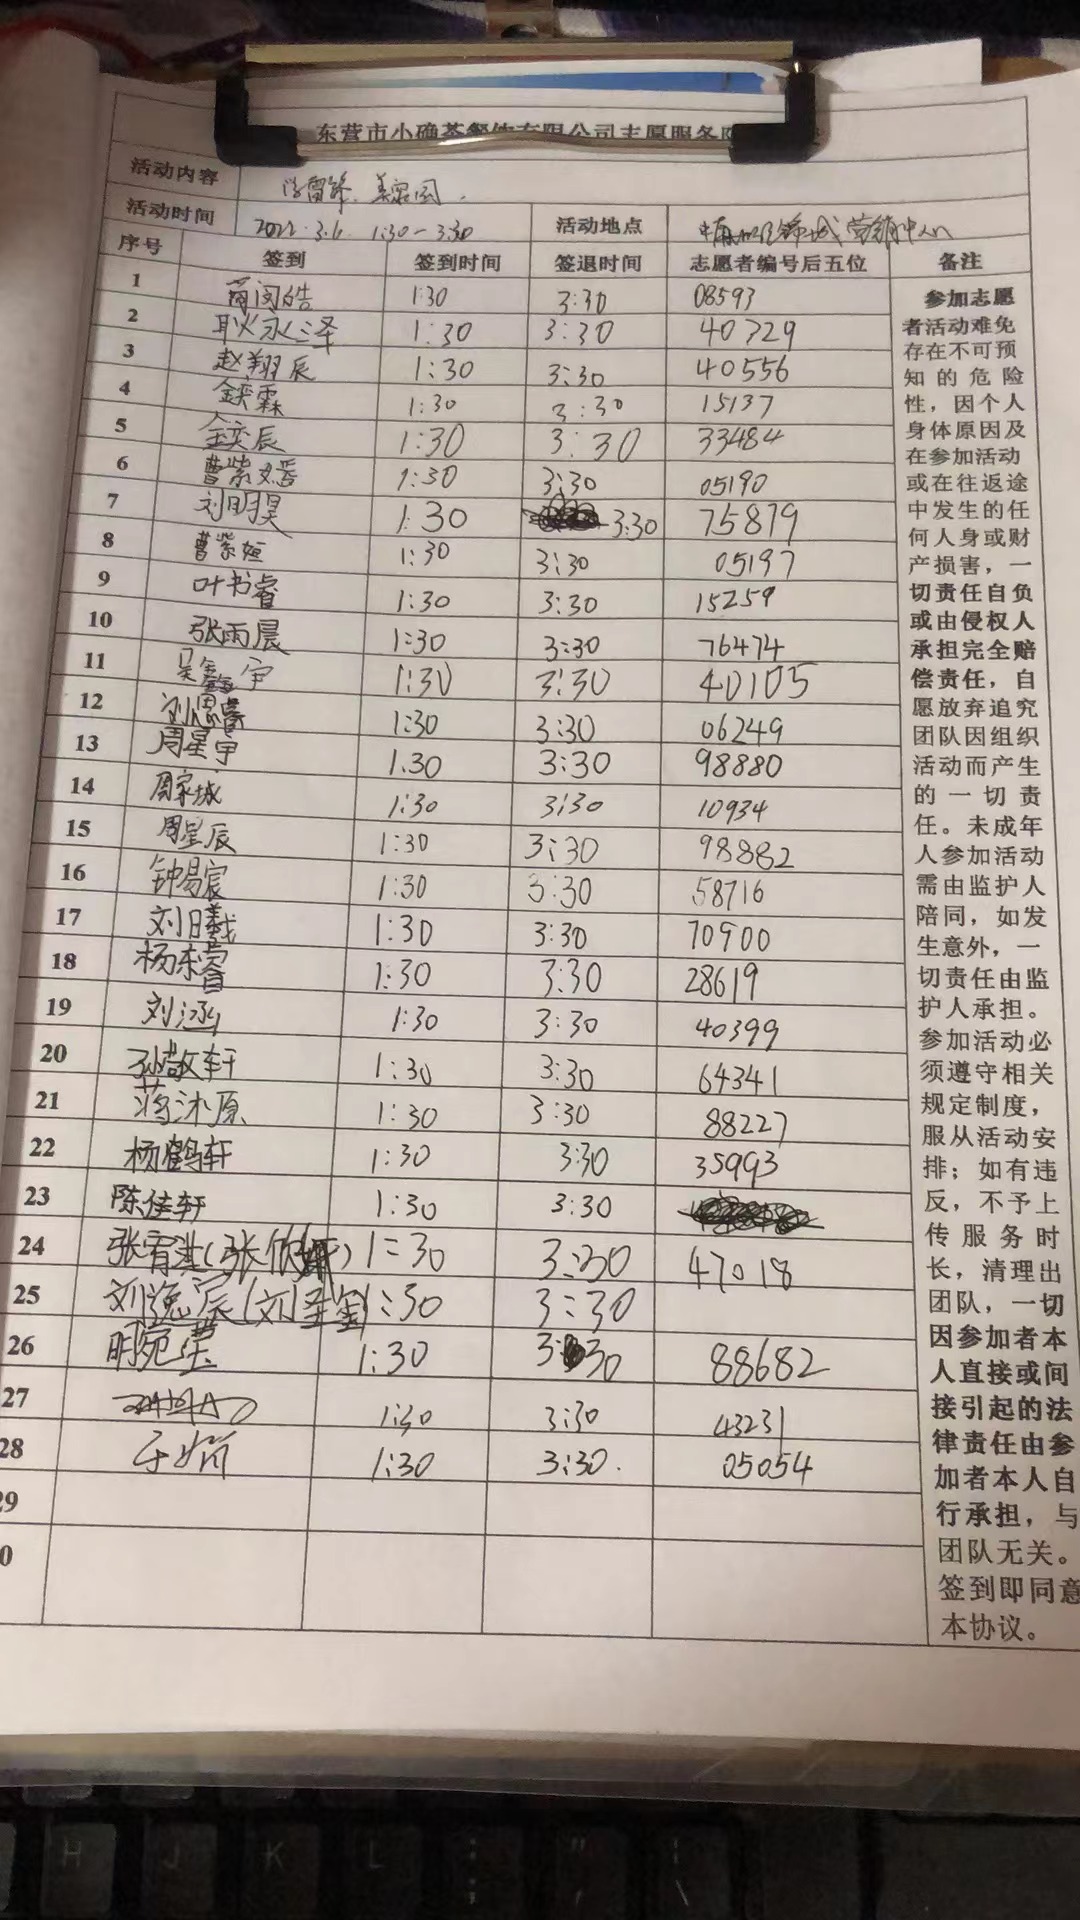 东营市小确茶餐饮有限公司志愿服务队
活动内容 学雷锋.美家园.
活动时间 2022.3.6. 1:30-3:30 活动地点 锦城营销中心
序号 签到 签到时间 签退时间 志愿者编号后五位 备注
1 闫皓 1:30 3:30 08593
2 耿永泽 1:30 3:30 40729
3 赵翔辰 1:30 3:30 40556
4 金奕霖 1:30 3:30 15137
5 金奕辰 1:30 3:30 33484
6 曹紫嫣 1:30 3:30 05190
7 刘明昊 1:30 3:30 75879
8 曹紫姮 1:30 3:30 05197
9 叶书睿 1:30 3:30 15259
10 张雨晨 1:30 3:30 76474
11 吴鑫宇 1:30 3:30 40105
12 刘恩睿 1:30 3:30 06249
13 周星宇 1.30 3:30 98880
14 周家城 1:30 3:30 10934
15 周星辰 1:30 3:30 98882
16 钟易宸 1:30 3:30 58716
17 刘日曦 1:30 3:30 70900
18 杨东睿 1:30 3:30 28619
19 刘涵 1:30 3:30 40399
20 孙敬轩 1:30 3:30 64341
21 蒋沐原 1:30 3:30 88227
22 杨鹤轩 1:30 3:30 35993
23 陈佳轩 1:30 3:30
24 张宥 (张 ) 1:30 3:30 47018
25 刘逸辰(刘 ) 1:30 3:30
26 明宛莹 1:30 3:30 88682
27 1:30 3:30 43231
28 于 1:30 3:30. 05054
29
0
参加志愿
者活动难免
存在不可预
知的危险
性，因个人
身体原因及
在参加活动
或在往返途
中发生的任
何人身或财
产损害，一
切责任自负
或由侵权人
承担完全赔
偿责任，自
愿放弃追究
团队因组织
活动而产生
的一切责
任。未成年
人参加活动
需由监护人
陪同，如发
生意外，一
切责任由监
护人承担。
参加活动必
须遵守相关
规定制度，
服从活动安
排；如有违
反，不予上
传服务时
长，清理出
团队，一切
因参加者本
人直接或间
接引起的法
律责任由参
加者本人自
行承担，与
团队无关。
签到即同意
本协议。
H J K L : ; " , | \